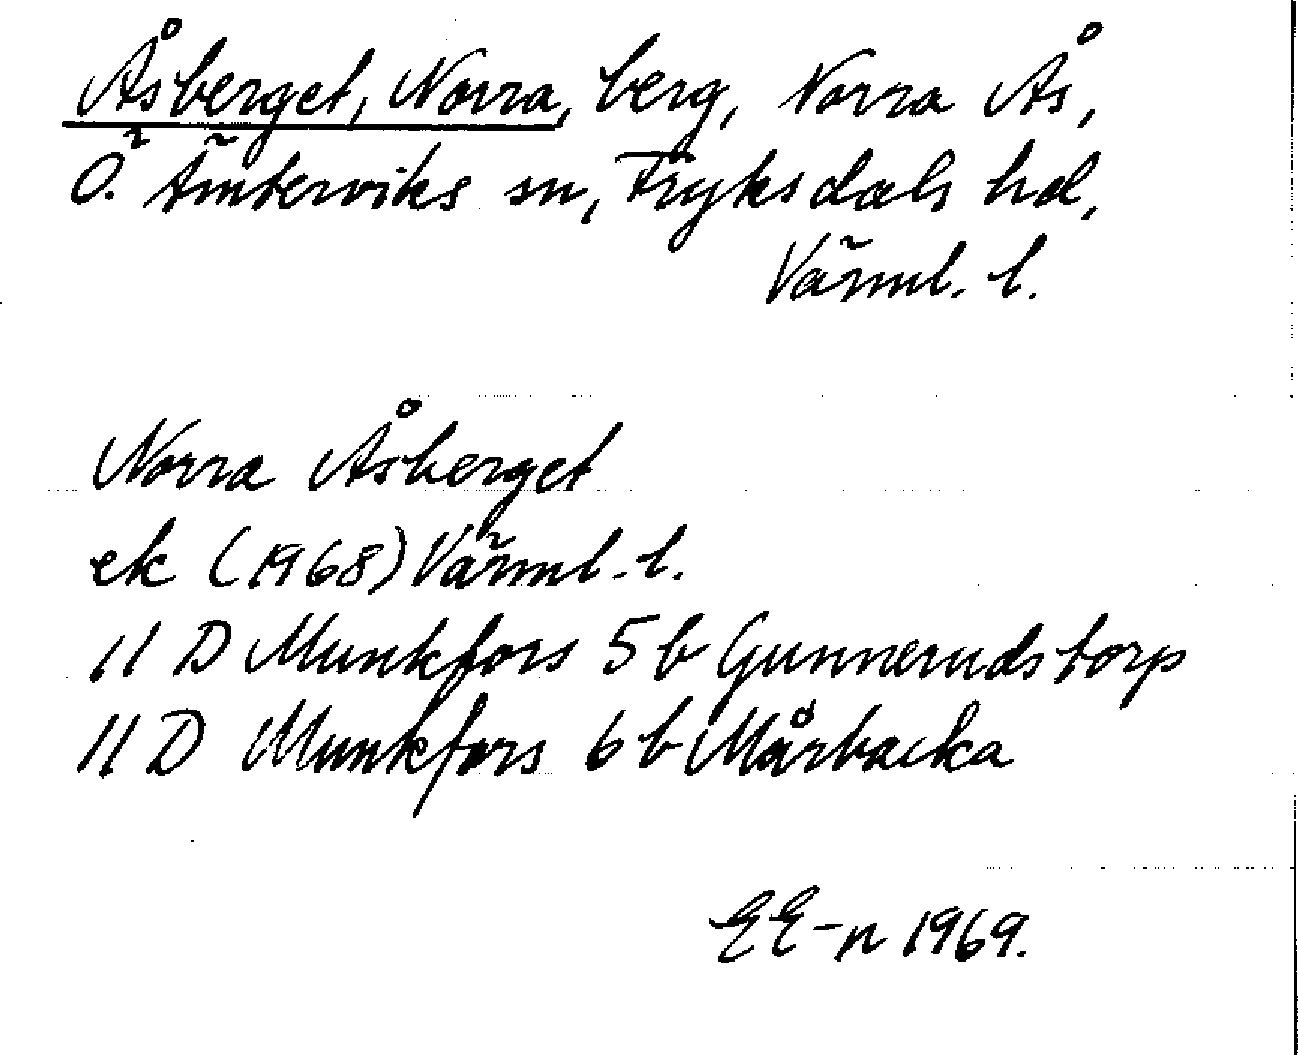 Åsberget, Norra, berg, Norra Ås,
Ö. Ämterviks sn, Fryksdals hd,
Värml. l.
Norra Åsberget
ek (1968) Värml. l.
11 D Munkfors 5 b Gunnerudstorp
11 D Munkfors 6 b Mårbacka
EE-n 1969.